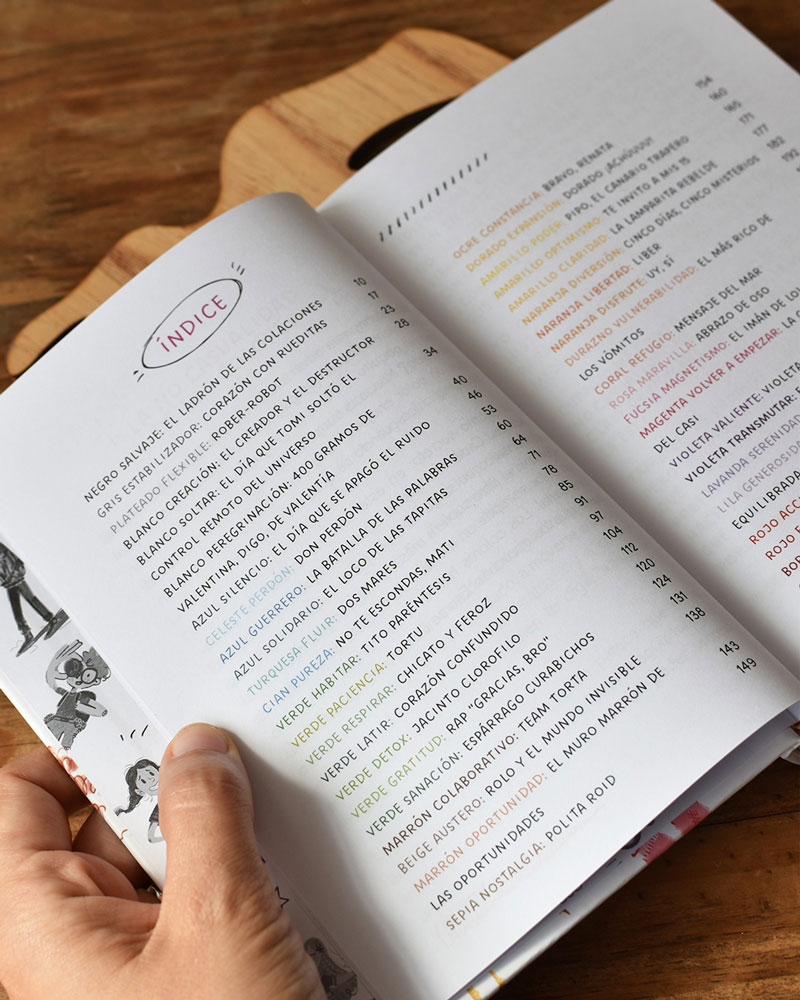 ÍNDICE
NEGRO SALVAJE: EL LADRÓN DE LAS COLACIONES 10
GRIS ESTABILIZADOR: CORAZÓN CON RUEDITAS 17
PLATEADO FLEXIBLE: ROBER-ROBOT 23
BLANCO CREACIÓN: EL CREADOR Y EL DESTRUCTOR 28
BLANCO SOLTAR: EL DÍA QUE TOMI SOLTÓ EL
CONTROL REMOTO DEL UNIVERSO 34
BLANCO PEREGRINACIÓN: 400 GRAMOS DE
VALENTINA, DIGO, DE VALENTÍA 40
AZUL SILENCIO: EL DÍA QUE SE APAGÓ EL RUIDO 46
CELESTE PERDÓN: DON PERDÓN 53
AZUL GUERRERO: LA BATALLA DE LAS PALABRAS 60
AZUL SOLIDARIO: EL LOCO DE LAS TAPITAS 64
TURQUESA FLUIR: DOS MARES 71
CIAN PUREZA: NO TE ESCONDAS, MATI 78
VERDE HABITAR: TITO PARÉNTESIS 85
VERDE PACIENCIA: TORTU 91
VERDE RESPIRAR: CHICATO Y FEROZ 97
VERDE LATIR: CORAZÓN CONFUNDIDO 104
VERDE DETOX: JACINTO CLOROFILO 112
VERDE GRATITUD: RAP "GRACIAS, BRO" 120
VERDE SANACIÓN: ESPÁRRAGO CURABICHOS 124
MARRÓN COLABORATIVO: TEAM TORTA 131
BEIGE AUSTERO: ROLO Y EL MUNDO INVISIBLE 138
MARRÓN OPORTUNIDAD: EL MURO MARRÓN DE
LAS OPORTUNIDADES 143
SEPIA NOSTALGIA: POLITA ROID 149
OCRE CONSTANCIA: BRAVO, RENATA 154
DORADO EXPANSIÓN: DORADO ¡ACHÚUUU! 160
AMARILLO PODER: PIPO, EL CANARIO TRAPERO 165
AMARILLO OPTIMISMO: TE INVITO A MIS 15 171
AMARILLO CLARIDAD: LA LAMPARITA REBELDE 177
NARANJA DIVERSIÓN: CINCO DÍAS, CINCO MISTERIOS 182
NARANJA LIBERTAD: LIBER 192
NARANJA DISFRUTE: UY, SÍ
DURAZNO VULNERABILIDAD: EL MÁS RICO DE
LOS VÓMITOS
CORAL REFUGIO: MENSAJE DEL MAR
ROSA MARAVILLA: ABRAZO DE OSO
FUCSIA MAGNETISMO: EL IMÁN DE
MAGENTA VOLVER A EMPEZAR: LA
DEL CASI
VIOLETA VALIENTE: VIOLETA
VIOLETA TRANSMUTAR:
LAVANDA SERENIDAD
LILA GENEROSIDAD
EQUILIBRADA
ROJO
ROJO